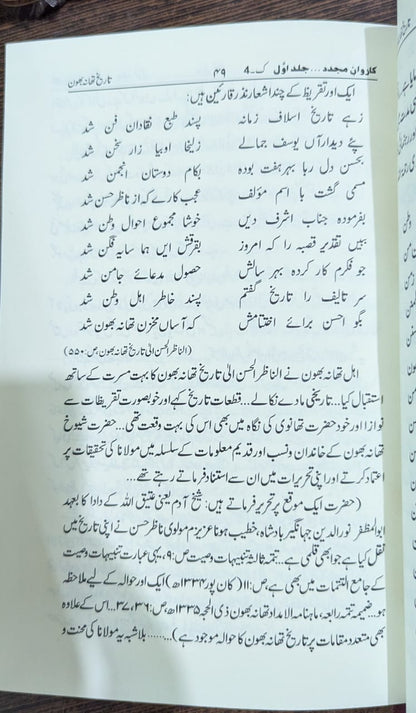 کاروان مجدد... جلد اوّل ک-4 ۴۹ تاریخ تھانہ بھون
ایک اور تقریظ کے چند اشعار نذر قارئین ہیں:
زہے تاریخ اسلاف زمانہ پسند طبع نقادان فن شد
پئے دیدارآں یوسف جمالے زلیخا اوبیا زار سخن شد
بحسن دل رہا بہرہفت بودہ بکام دوستان انجمن شد
مسمی گشت با اسم مؤلف عجب کارے کہ از ناظر حسن شد
بفرمودہ جناب اشرف دیں خوشا مجموع احوال وطن شد
ببیں تقدیر قصبہ را کہ امروز بفرقش ایں ہما سایہ فگن شد
جو فکرم کار کردہ بہر سالش حصول مدعائے جامن شد
سر تالیف را تاریخ گفتم پسند خاطر اہل وطن شد
بگو احسن برائے اختتامش کہ آساں مخزن تھانہ بھون شد
(الناظر الحسن الیٰ تاریخ تھانہ بھون: ص: ۵۵۰)
اہل تھانہ بھون نے الناظر الحسن الیٰ تاریخ تھانہ بھون کا بہت مسرت کے ساتھ
استقبال کیا... تاریخی مادے نکالے... قطعات تاریخ کہے اور خوبصورت تقریظات سے
نوازا اور خود حضرت تھانوی کی نگاہ میں بھی اس کی بہت وقعت تھی... حضرت شیوخ
تھانہ بھون کے خاندان و نسب اور قدیم معلومات کے سلسلہ میں مولانا کی تحقیقات پر
اعتماد کرتے اور اپنی تحریرات میں ان سے استناد فرماتے رہتے تھے...
(حضرت ایک موقع پر تحریر فرماتے ہیں: شیخ آدم یعنی عتیق اللہ کے دادا کا بعہد
ابوالمظفر نورالدین جہانگیر بادشاہ، خطیب ہونا عزیزم مولوی ناظر حسن نے اپنی تاریخ میں
نقل کیا ہے جو ابھی قلمی ہے... تتمہ ثالثہ تنبیہات وصیت ص: ۹، یہی عبارت تنبیہات وصیت
کے جامع التتمات میں بھی ہے، ص: ۱۱ (کان پور ۱۳۳۴ھ) ایک اور حوالہ کے لیے ملاحظہ
ہو... ضمیمہ تتمہ رابعہ، ماہنامہ الامداد تھانہ بھون ذی الحجہ ۱۳۳۵ھ ص: ۳۶، ۳۷... اس کے علاوہ
بھی متعدد مقامات پر تاریخ تھانہ بھون کا حوالہ موجود ہے)...... بلاشبہ یہ مولانا کی محنت و